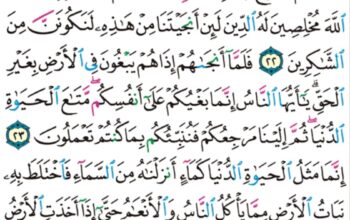 ٱللَّهَ مُخۡلِصِينَ لَهُ ٱلدِّينَ لَئِنۡ أَنجَيۡتَنَا مِنۡ هَٰذِهِۦ لَنَكُونَنَّ مِنَ
ٱلشَّٰكِرِينَ ٢٢ فَلَمَّآ أَنجَىٰهُمۡ إِذَا هُمۡ يَبۡغُونَ فِي ٱلۡأَرۡضِ بِغَيۡرِ
ٱلۡحَقِّۗ يَٰٓأَيُّهَا ٱلنَّاسُ إِنَّمَا بَغۡيُكُمۡ عَلَىٰٓ أَنفُسِكُمۖ مَّتَٰعَ ٱلۡحَيَوٰةِ
ٱلدُّنۡيَاۖ ثُمَّ إِلَيۡنَا مَرۡجِعُكُمۡ فَنُنَبِّئُكُم بِمَا كُنتُمۡ تَعۡمَلُونَ ٢٣
إِنَّمَا مَثَلُ ٱلۡحَيَوٰةِ ٱلدُّنۡيَا كَمَآءٍ أَنزَلۡنَٰهُ مِنَ ٱلسَّمَآءِ فَٱخۡتَلَطَ بِهِۦ
نَبَاتُ ٱلۡأَرۡضِ مِمَّا يَأۡكُلُ ٱلنَّاسُ وَٱلۡأَنۡعَٰمُ حَتَّىٰٓ إِذَآ أَخَذَتِ ٱلۡأَرۡضُ